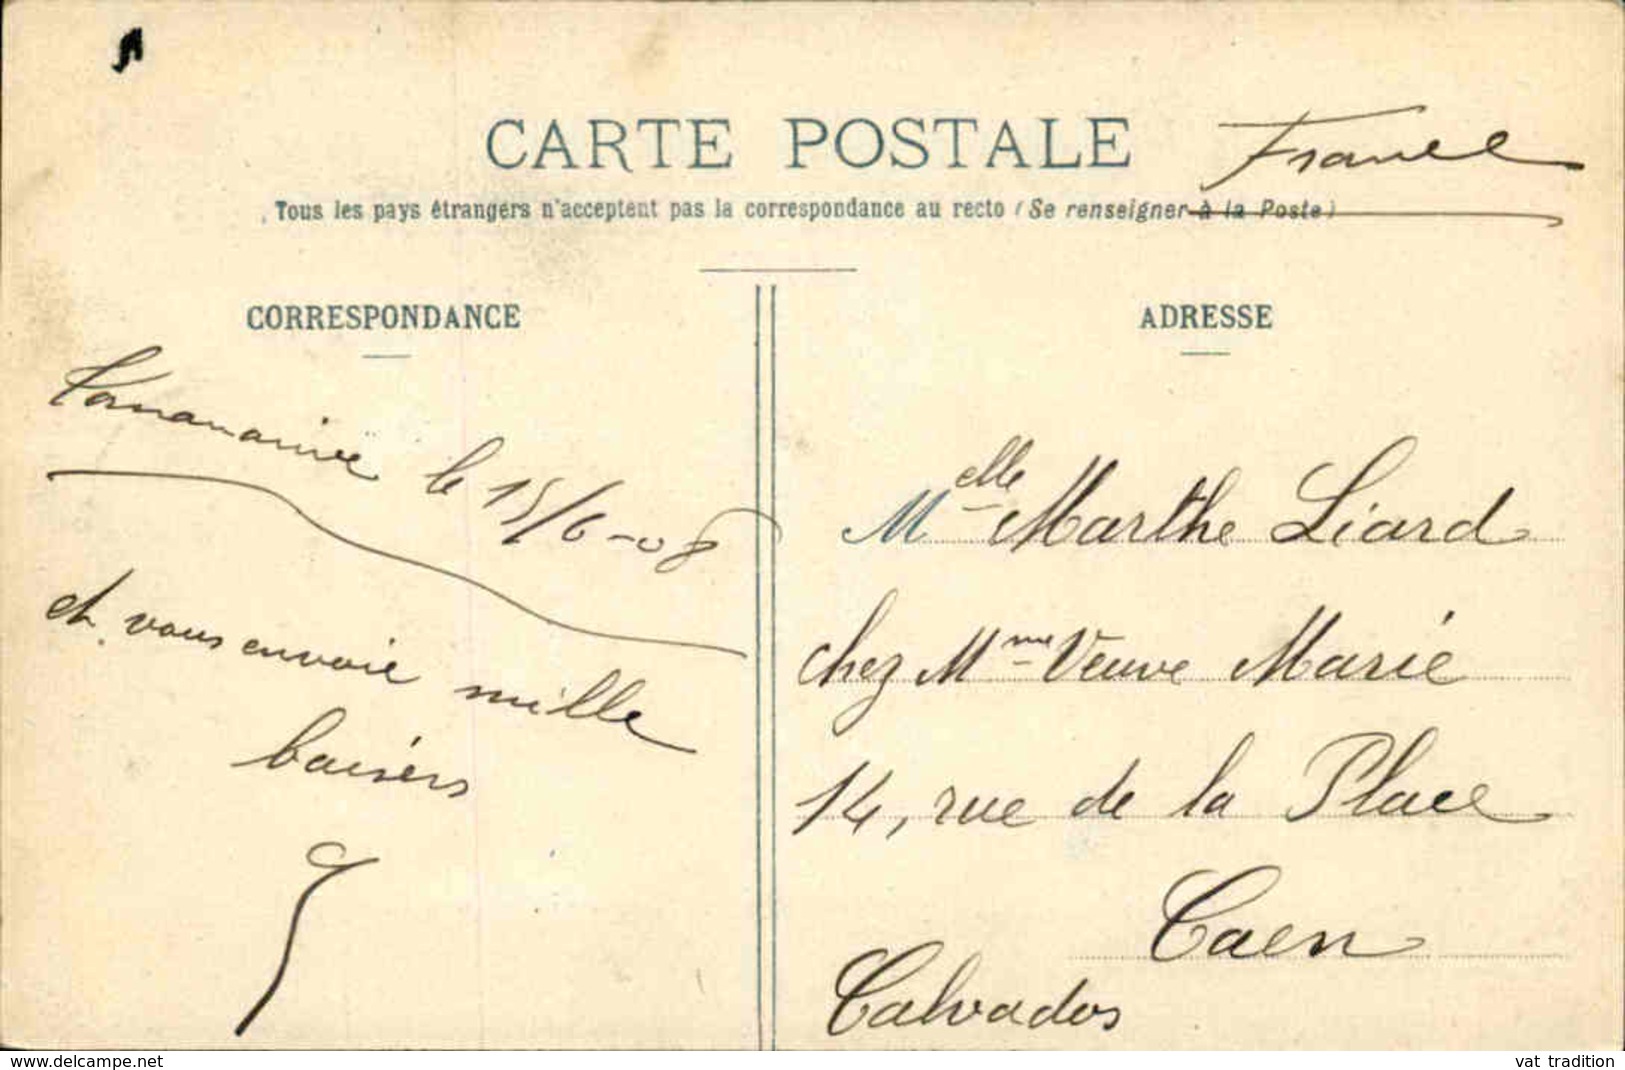 CARTE POSTALE
France
Tous les pays étrangers n'acceptent pas la correspondance au recto (Se renseigner à la Poste)
CORRESPONDANCE
le 15/6-08
et vous envoie mille
baisers
ADRESSE
Melle Marthe Liard
chez Mme Veuve Marie
14, rue de la Place
Caen
Calvados
www.delcampe.net
vat tradition